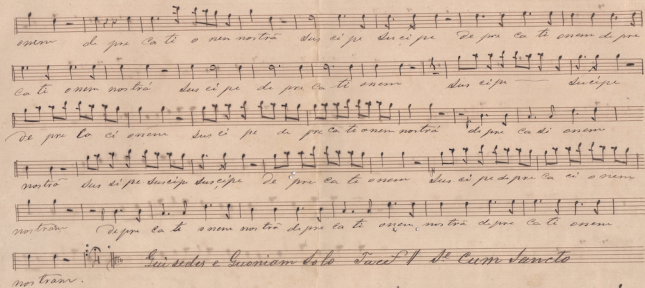 onem de pre ca ti o nem nostrã sus ci pe sus ci pe de pre ca ti onem de pre
ca ti onem nostrã sus ci pe de pre ca ti onem sus cipe suscipe
De pre ca ci onem sus ci pe de pre ca ti onem nostrã de pre ca si onem
nostrã sus si pe suscipe suscipe de pre ca ti onem sus si pe de pre ca ci onem
nostram de pre ca ti onem nostrã de pre ca ti onem nostrã de pre ca ti onem
Qui sedes e Quoniam Solo Tacet Se Cum Sancto
nostram.